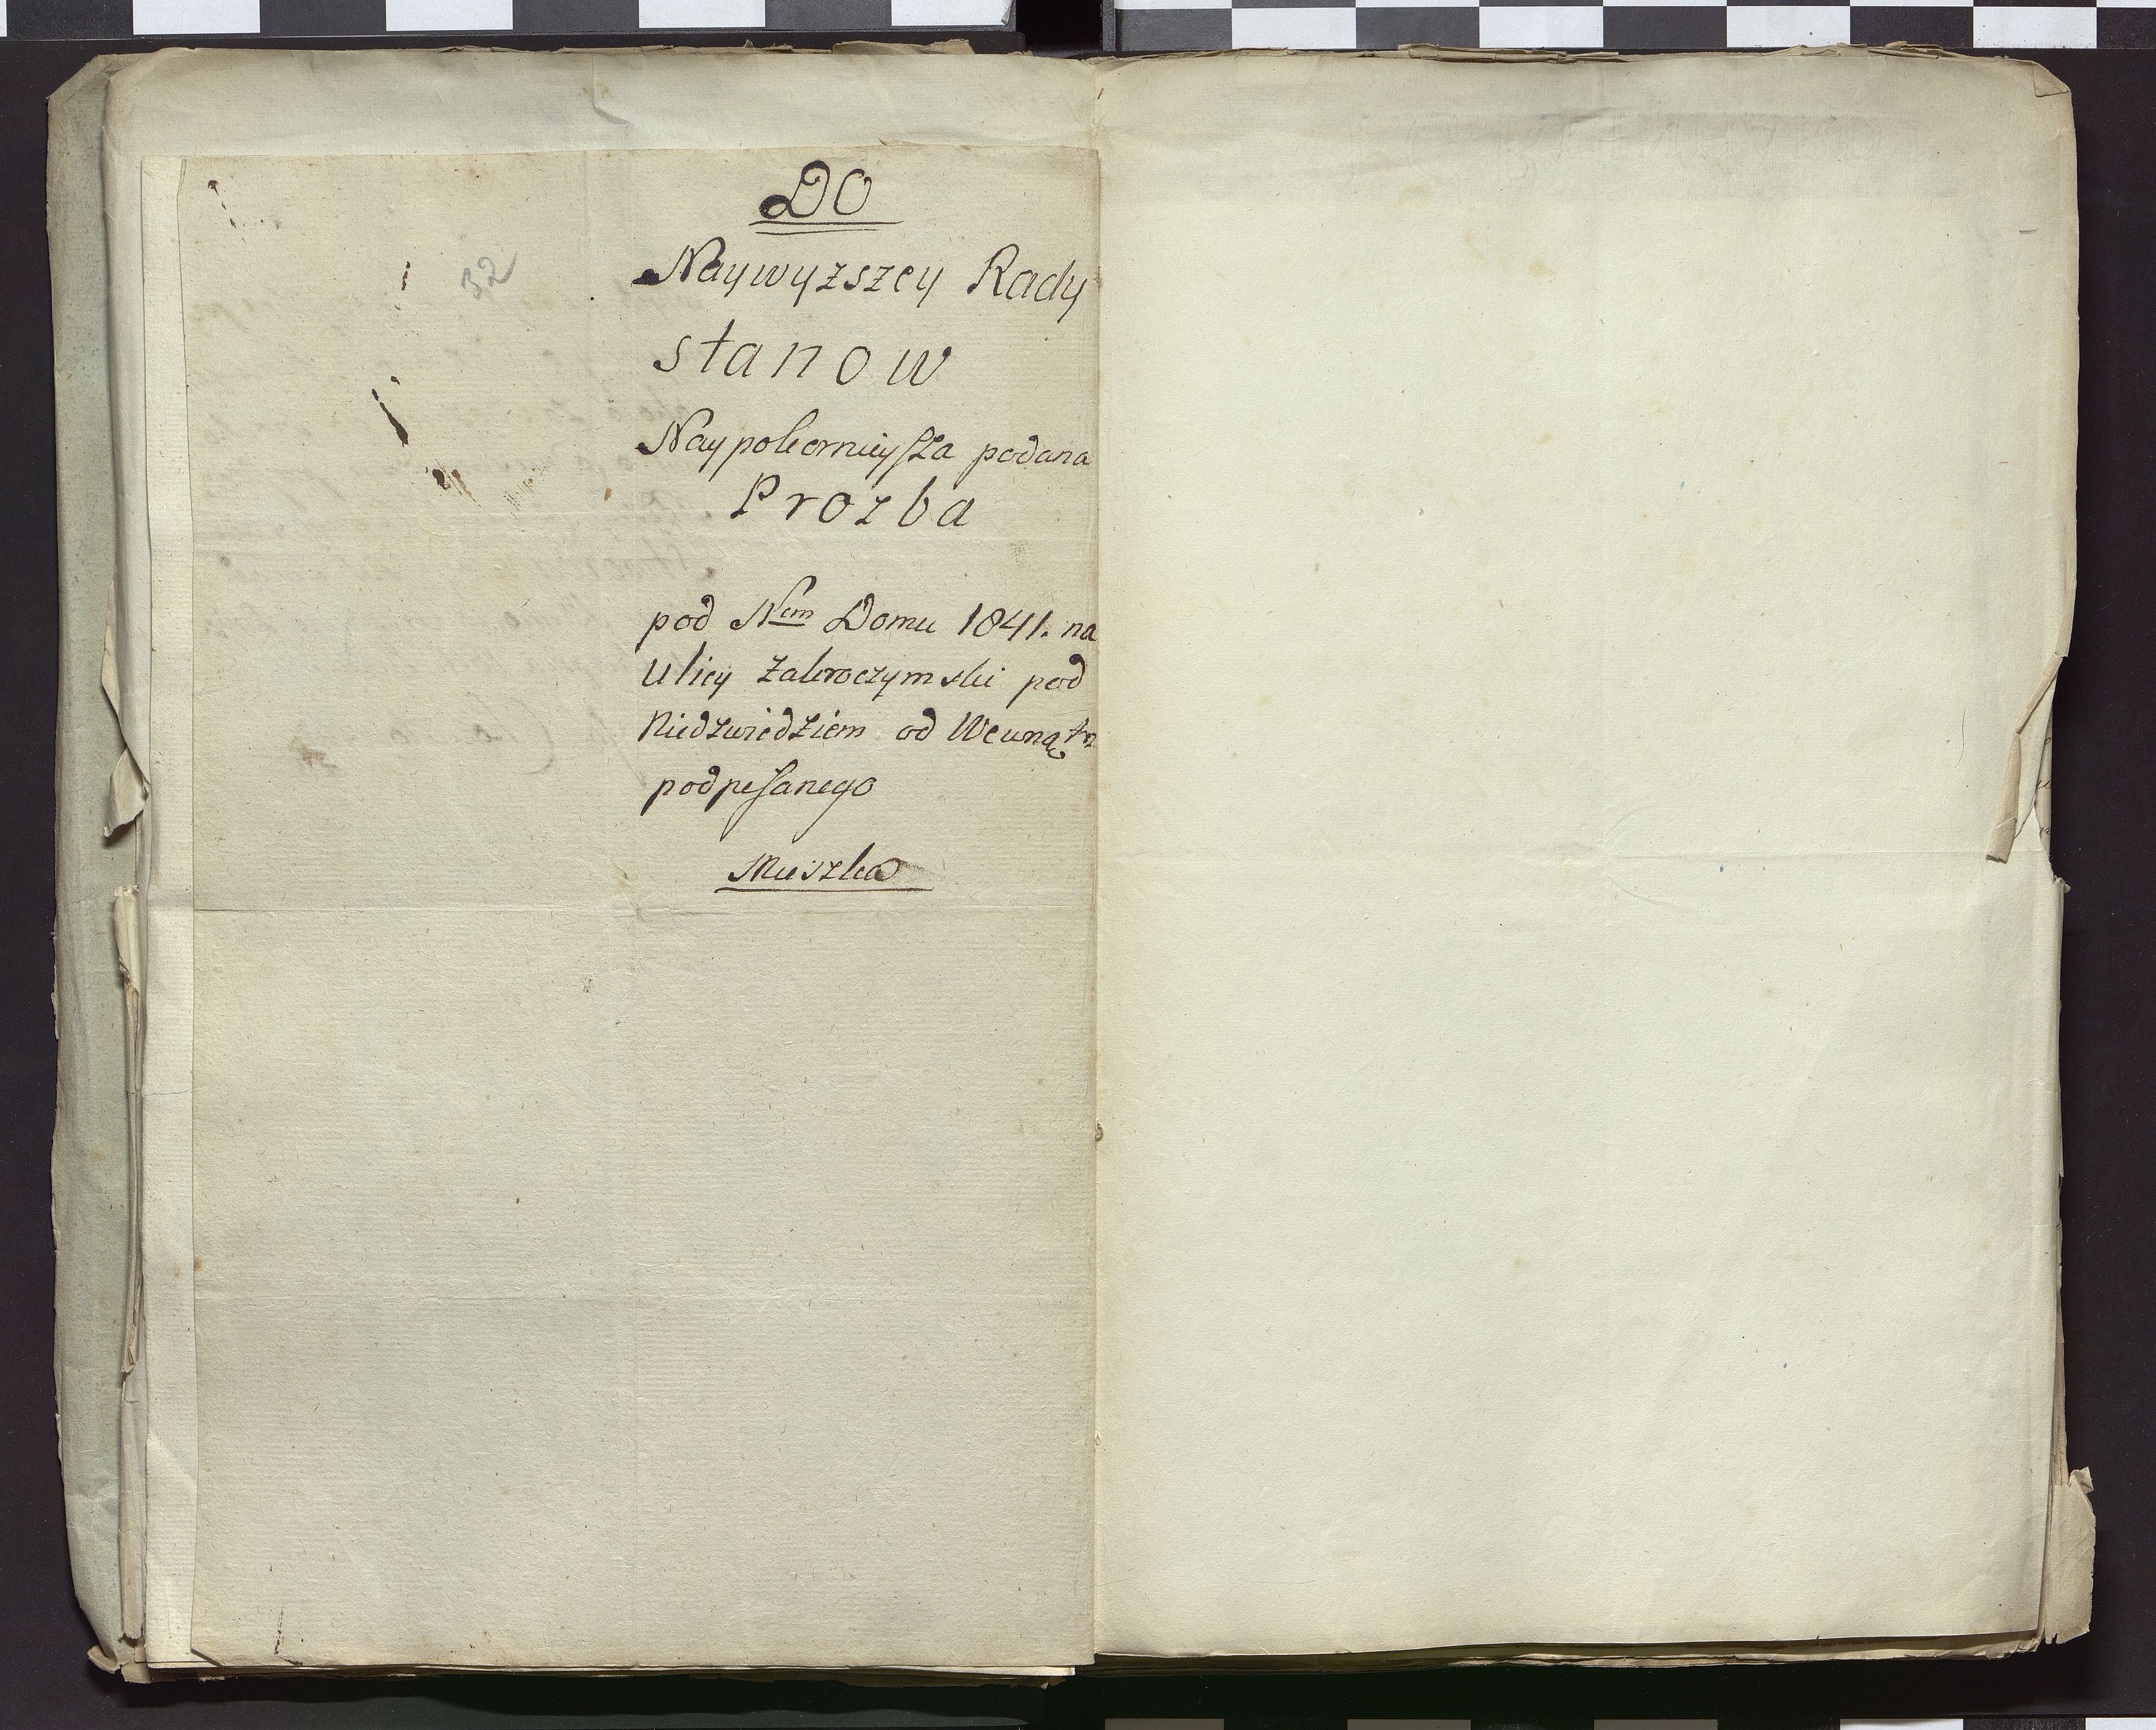 DO
32
Naywyzszey Rady
stanow
Naypokorniejsza podana
Prozba
pod Nem Domu 1841. na
ulicy Zakroczymski pod
Niedzwiedziem od Wewnątrz
podpisanego
Mieszka